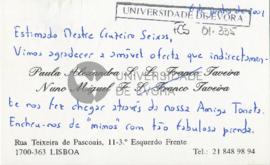 UNIVERSIDADE DE ÉVORA
Estimado Mestre Cruzeiro Seixas,
Vimos agradecer a amável oferta que indirectamen-
Paula Alexandra F. L. Franco Taveira
Nuno Miguel F. L. Franco Taveira
te nos fez chegar através da nossa Amiga
Encheu-nos de "mimos" com tão fabulosa prenda.
Rua Teixeira de Pascoais, 11-3.º Esquerdo Frente
1700-363 LISBOA
Tel.: 21 848 98 94